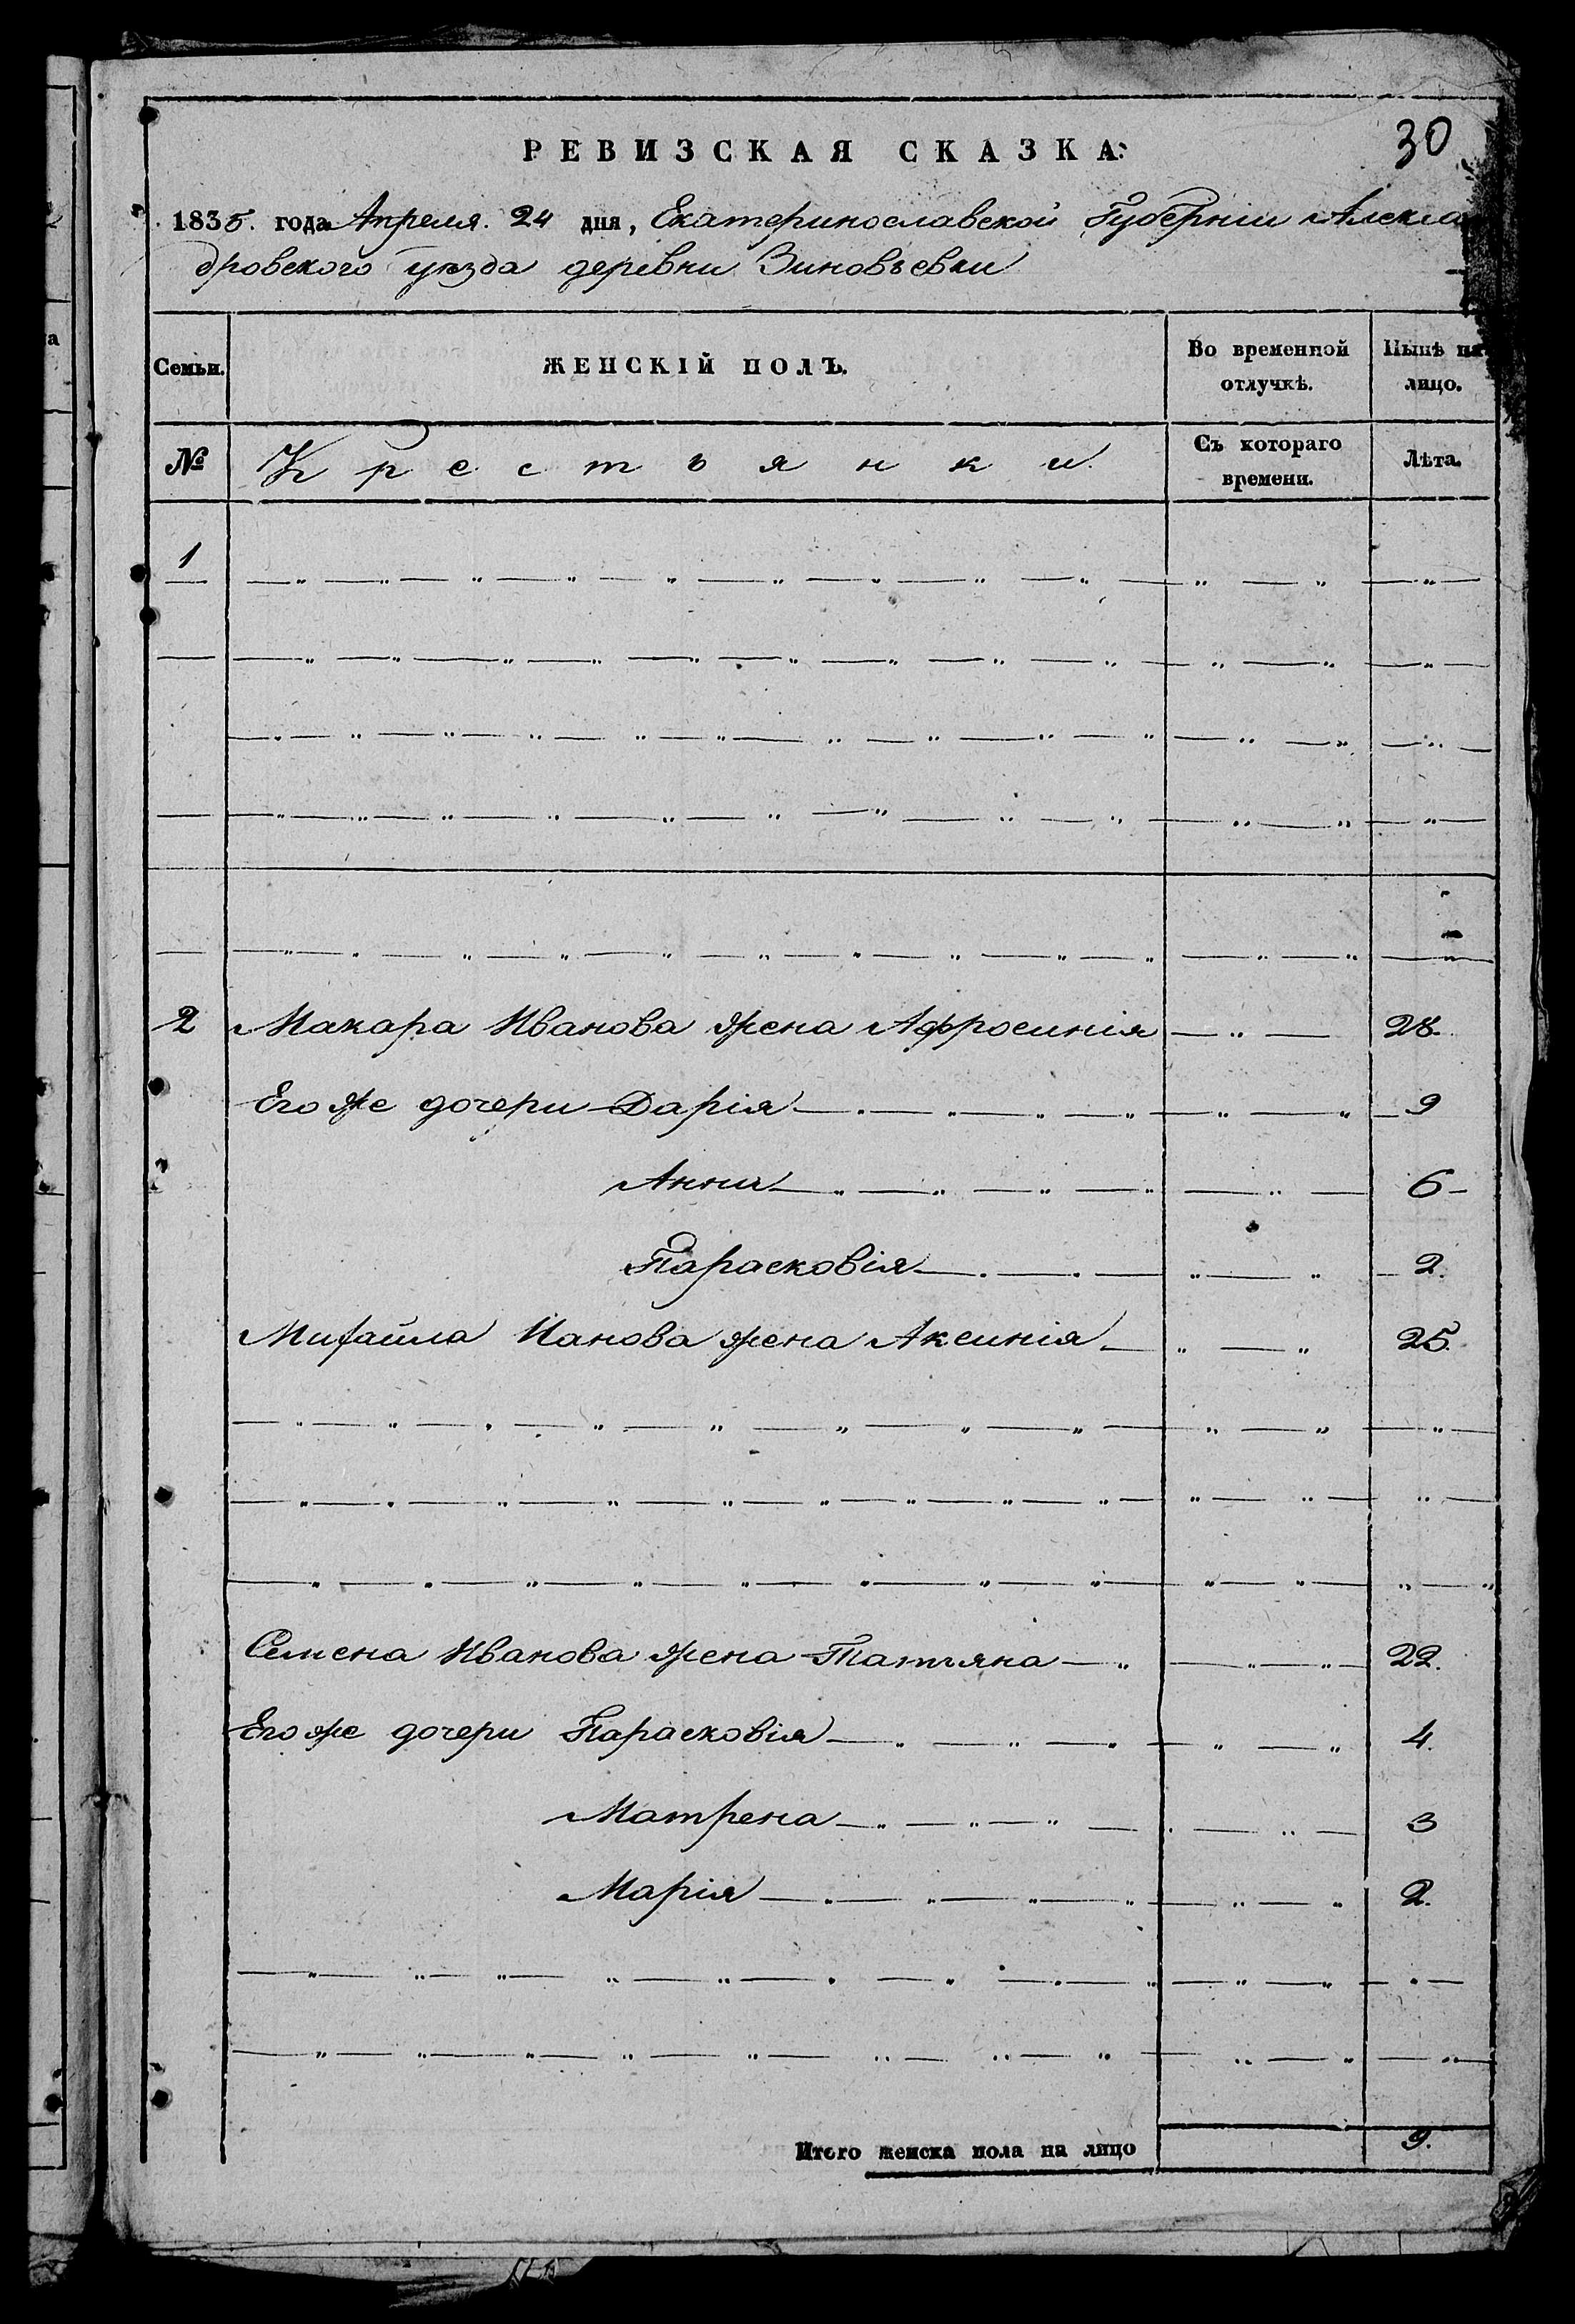 РЕВИЗСКАЯ СКАЗКА:
30
1835. года Апреля. 24 дня, Екатеринославской Губерніи Алекса
дровского уезда деревни Зиновъевки
Семьи. ЖЕНСКІЙ ПОЛЪ. Во временной отлучкѣ. Нынѣ на лицо.
№ Крестьянки. Съ котораго времени. Лѣта.
1
2 Макара Иванова жена Афросинія 28.
Его же дочери Дарія 9
Анна 6
Парасковія 2.
Михайла Иванова жена Аксинія 25.
Семена Иванова жена Татьяна 22.
Его же дочери Парасковія 4.
Матрена 3
Марія 2.
Итого женска пола на лицо 9.